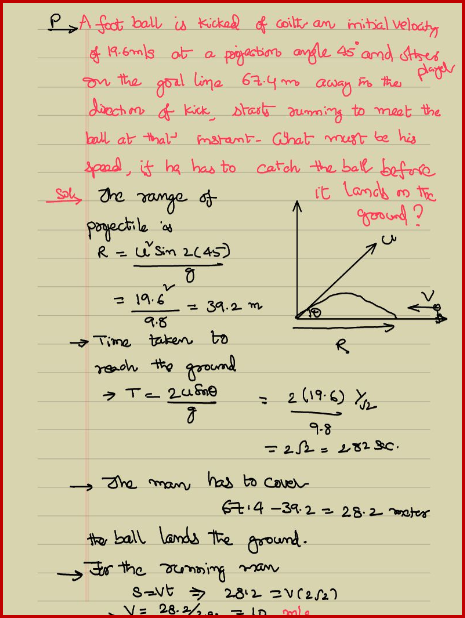 P → A foot ball is kicked of with an initial velocity
of 19.6m/s at a projection angle 45° and other player
on the goal line 67.4 m away in the
direction of kick, starts running to meet the
ball at that instant. What must be his
speed, if he has to catch the ball before
it lands on the
ground?
Sol. The range of
projectile is
R = u² Sin 2(45) / g
= 19.6² / 9.8 = 39.2 m
u
θ
V
R
→ Time taken to
reach the ground
→ T = 2u Sinθ / g = 2(19.6) 1/√2 / 9.8
= 2√2 = 2.82 Sec.
→ The man has to cover
67.4 - 39.2 = 28.2 meter
the ball lands the ground.
→ For the running man
S = Vt ⇒ 28.2 = V(2√2)